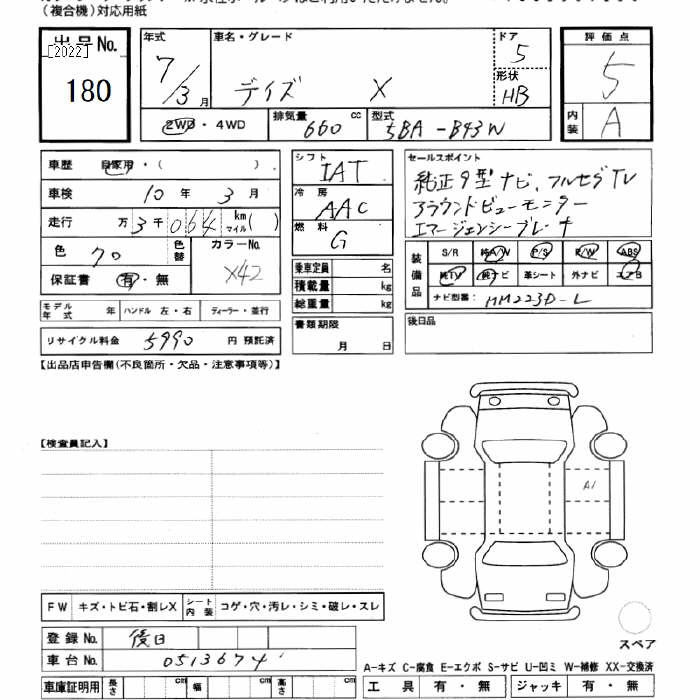 (複合機)対応用紙
出品No.
[2022]
180
年式
7/3月
車名・グレード
デイズ X
ドア
5
形状
HB
評価点
5
内装
A
2WD・4WD
排気量 660 cc
型式 5BA-B43W
車歴 自家用・( )
車検 10年 3月
走行 万 3千064 km マイル( )
色 クロ
色替
カラーNo.
X42
保証書 有・無
シフト
IAT
冷房
AAC
燃料
G
乗車定員 名
積載量 kg
総重量 kg
セールスポイント
純正9型ナビ、フルセグTV
アラウンドビューモニター
エマージェンシーブレーキ
装備品
S/R 純A/W P/S P/W ABS
純TV 純ナビ 革シート 外ナビ エアB
ナビ型番: MM223D-L
モデル年式 年 ハンドル 左・右 ディーラー・並行
リサイクル料金 5990 円 預託済
書類期限
月 日
後日品
【出品店申告欄(不良箇所・欠品・注意事項等)】
【検査員記入】
A1
FW キズ・トビ石・割レX シート内装 コゲ・穴・汚レ・シミ・破レ・スレ
登録No. 後日
車台No. 0513674
スペア
A-キズ C-腐食 E-エクボ S-サビ U-凹ミ W-補修 XX-交換済
車庫証明用 長さ cm 幅 cm 高さ cm
工具 有・無 ジャッキ 有・無